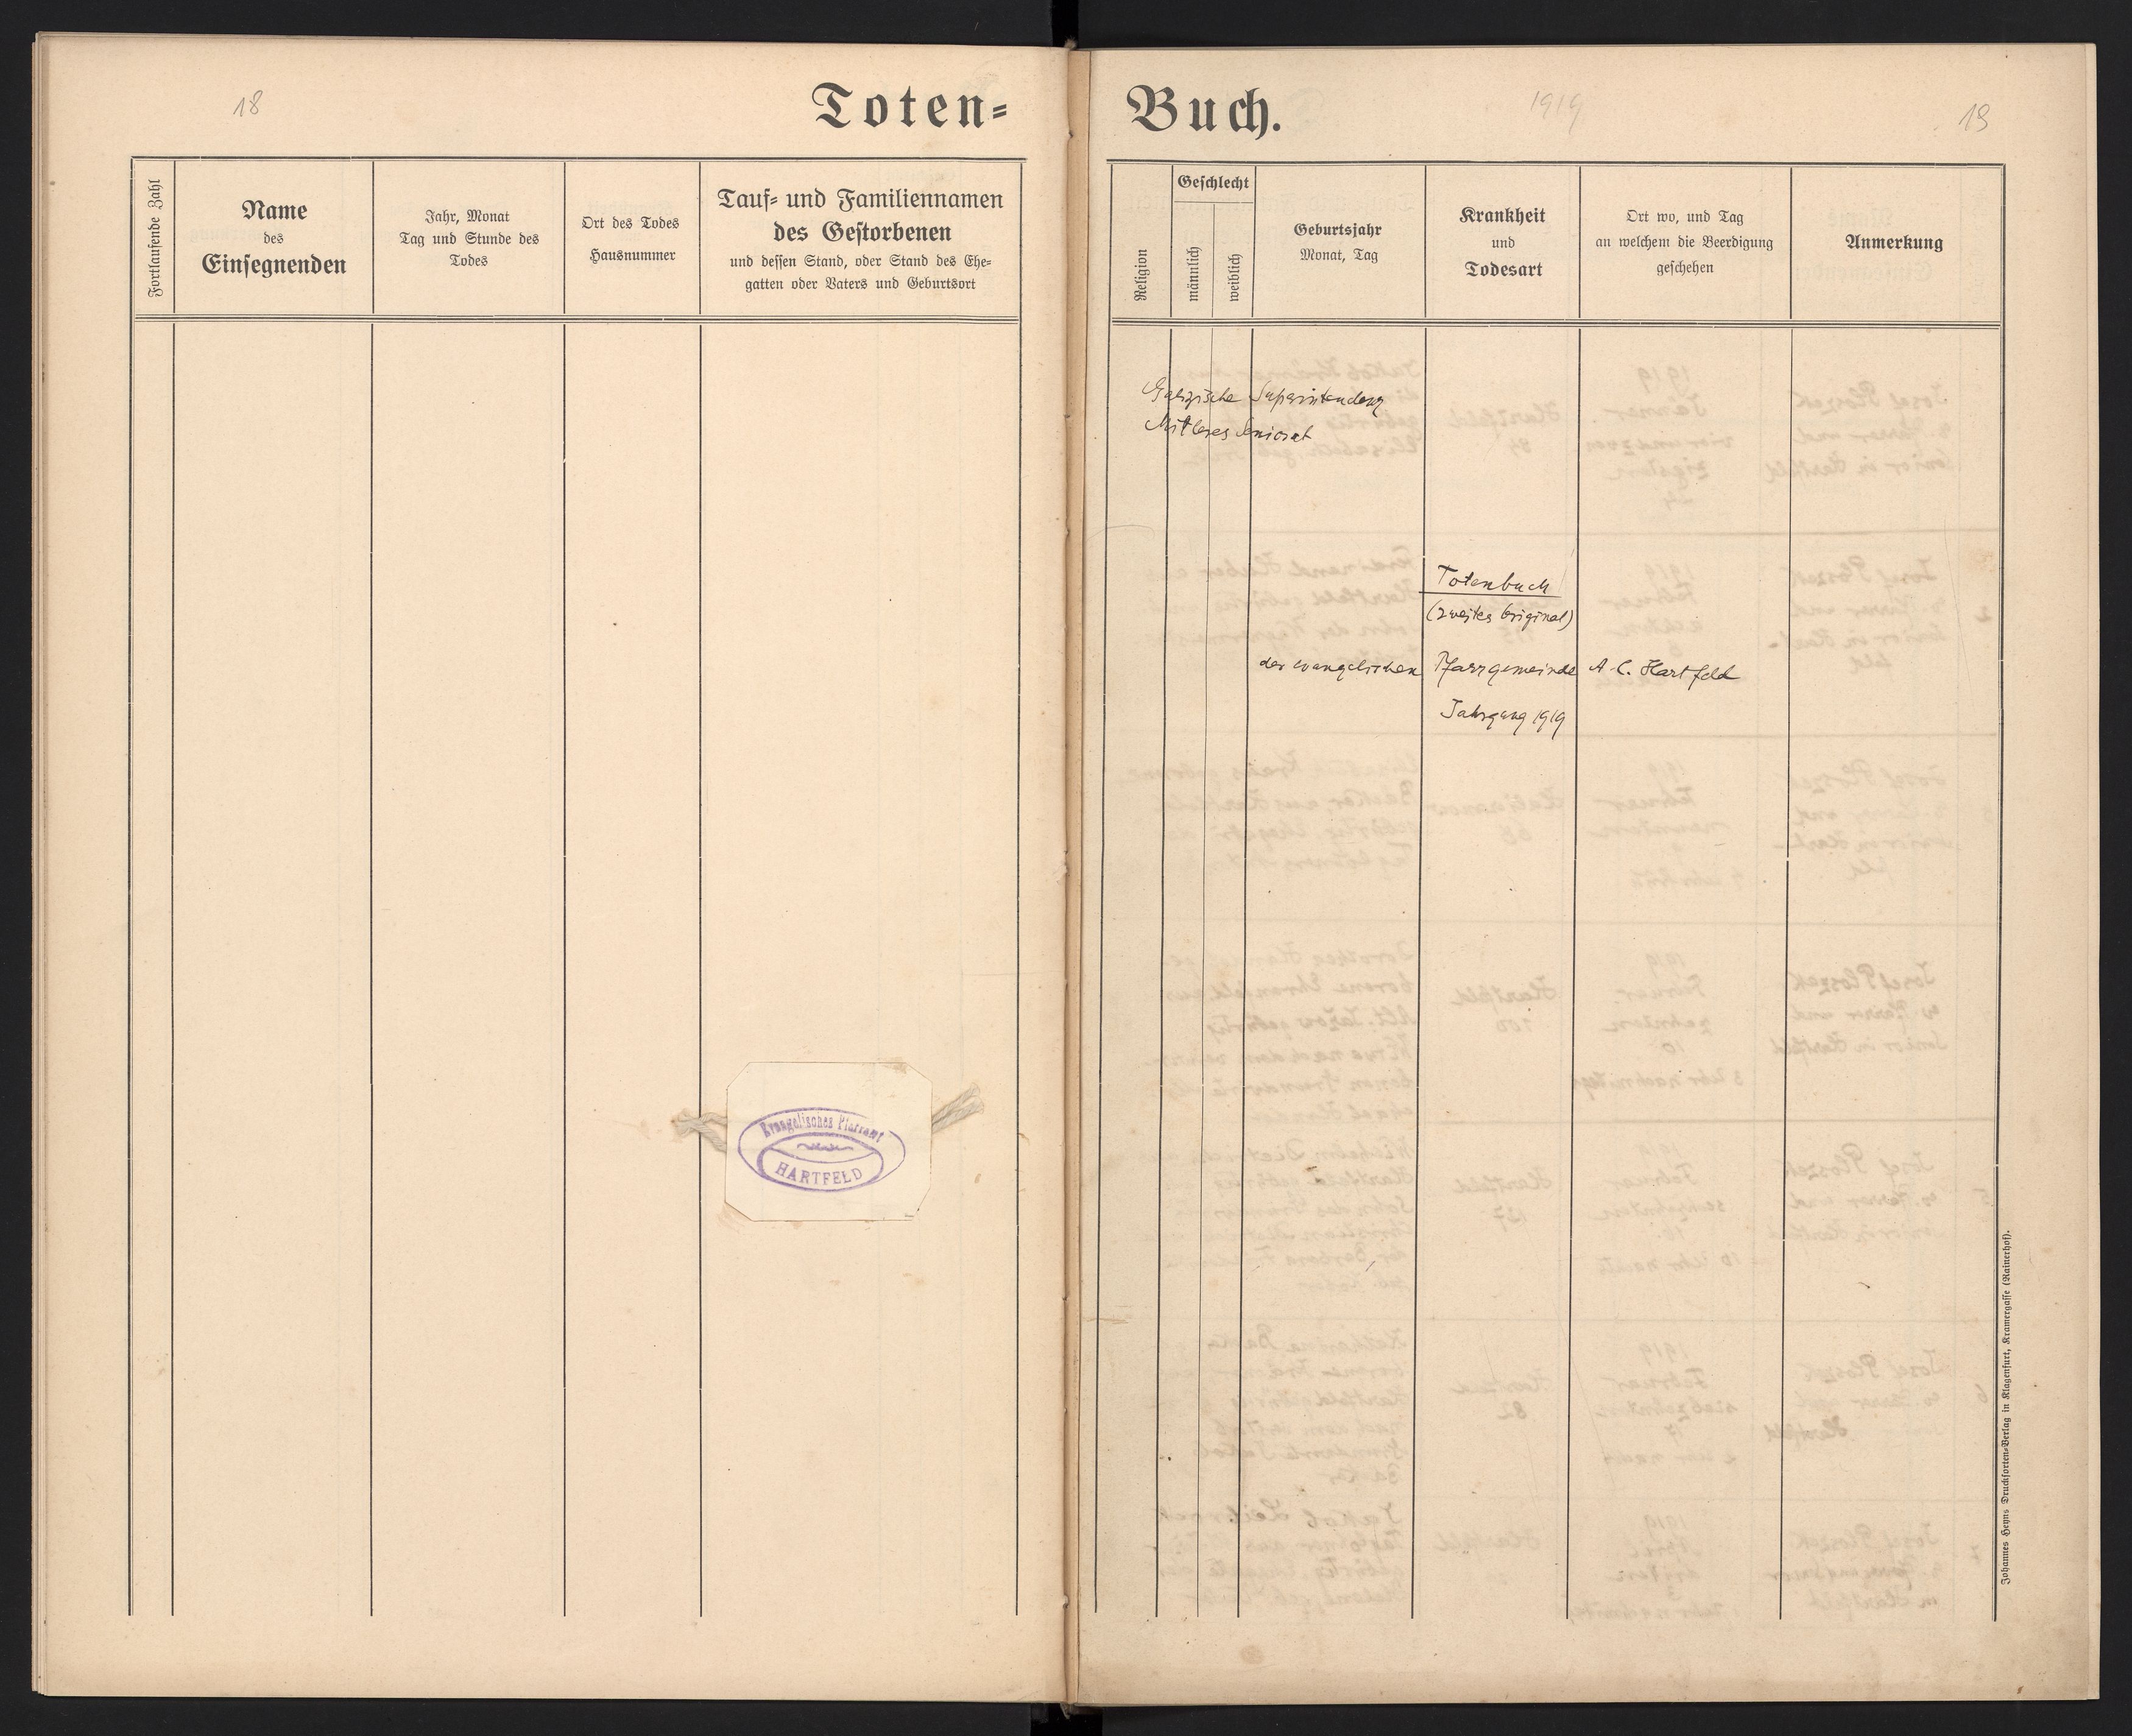 18
Toten=
Fortlaufende Zahl
Name
des
Einsegnenden
Jahr, Monat
Tag und Stunde des
Todes
Ort des Todes
Hausnummer
Tauf= und Familiennamen
des Gestorbenen
und dessen Stand, oder Stand des Ehe=
gatten oder Vaters und Geburtsort
Evangelisches Pfarramt
HARTFELD
Buch.
1919
19
Religion
Geschlecht
männlich
weiblich
Geburtsjahr
Monat, Tag
Krankheit
und
Todesart
Ort wo, und Tag
an welchem die Beerdigung
geschehen
Anmerkung
Galizische Superintendenz
Mittleres Seniorat
Totenbuch
(zweites Original)
der evangelischen Pfarrgemeinde A. C. Hartfeld
Jahrgang 1919
Johannes Heyns Drucksorten=Verlag in Klagenfurt, Kramergasse (Rainerhof).